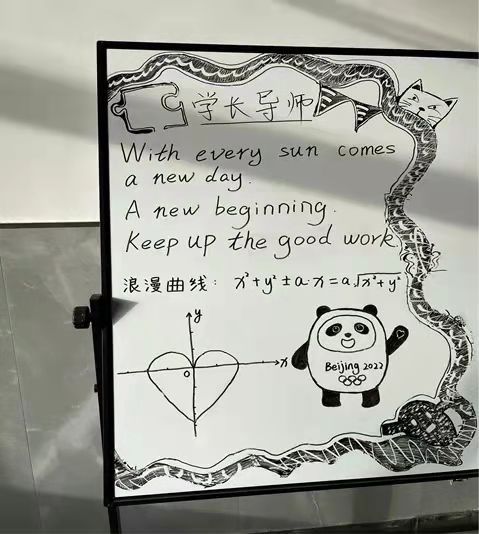 学长导师
With every sun comes
a new day.
A new beginning.
Keep up the good work
浪漫曲线: x²+y²±a·x=a√x²+y²
y
x
o
Beijing 2022